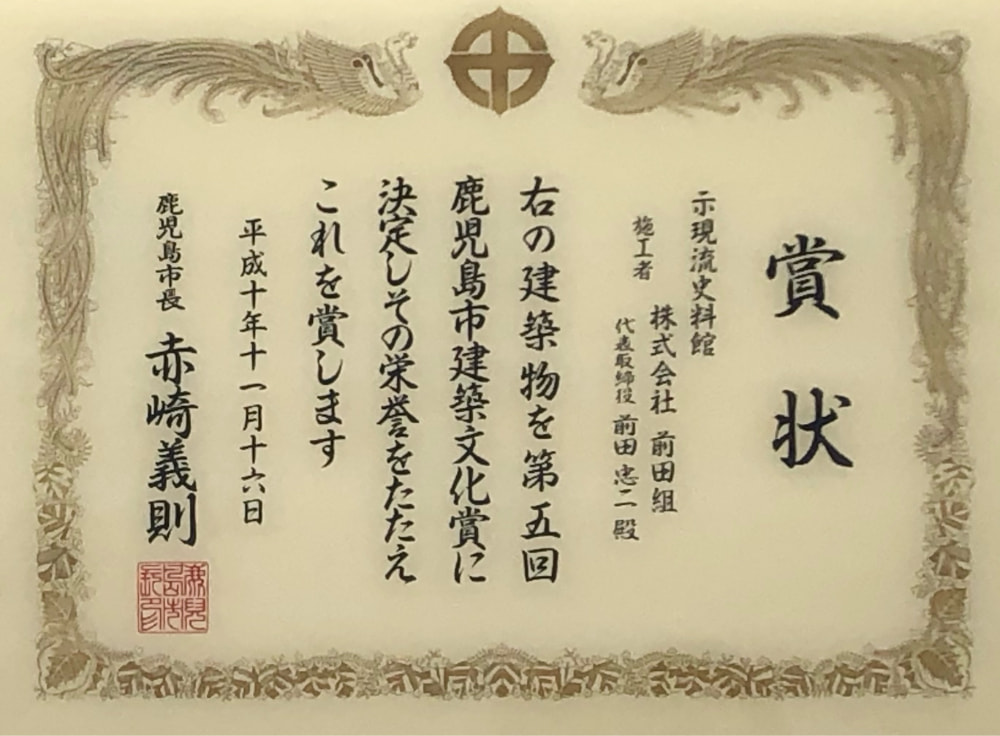 賞状
示現流史料館
施工者 株式会社 前田組
代表取締役 前田忠二殿
右の建築物を第五回
鹿児島市建築文化賞に
決定しその栄誉をたたえ
これを賞します
平成十年十一月十六日
鹿児島市長 赤崎義則